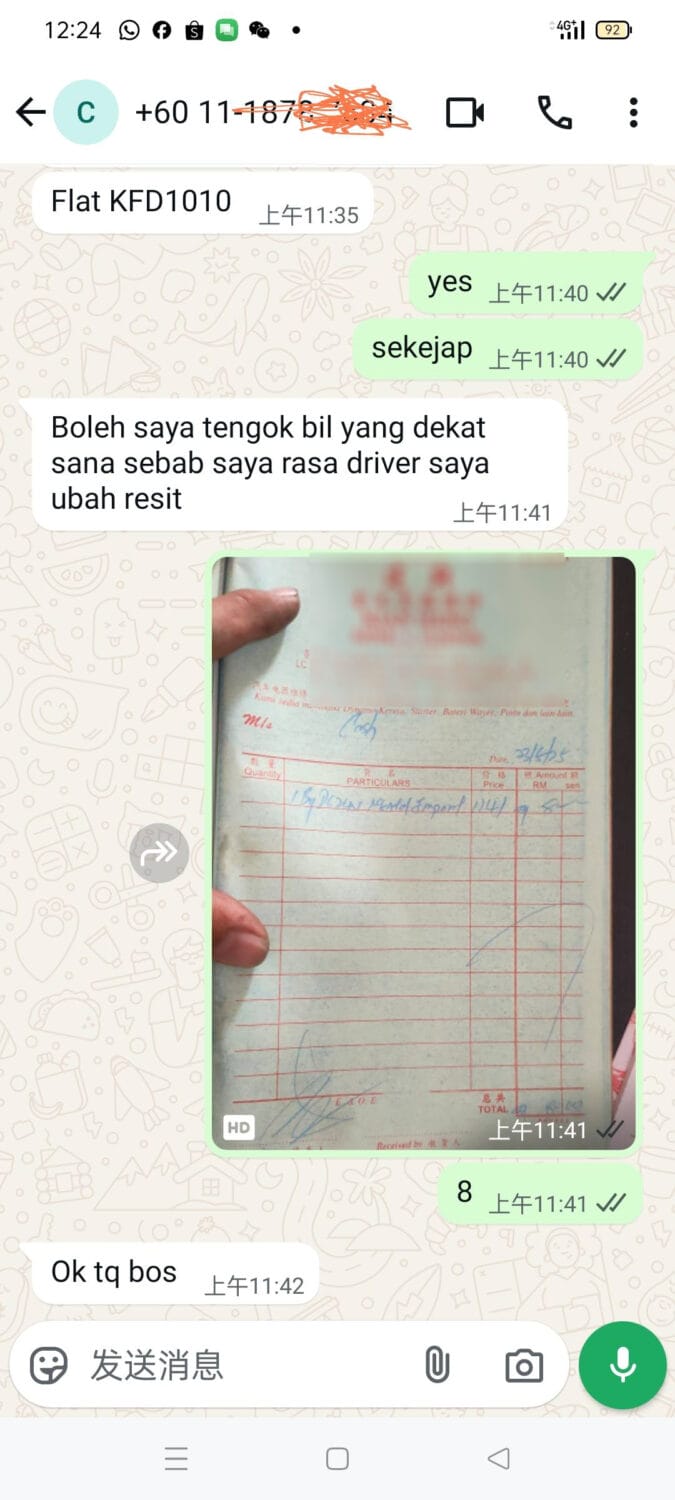 12:24
4G+
92
C
+60 11-187
Flat KFD1010
上午11:35
yes
上午11:40
sekejap
上午11:40
Boleh saya tengok bil yang dekat
sana sebab saya rasa driver saya
ubah resit
上午11:41
M/s
Cash
Date, 23/6/25
數 量
Quantity
PARTICULARS
價 格
Price
Amount
RM sen
Import
E. & O. E
總 共
TOTAL
Received by
HD
上午11:41
8
上午11:41
Ok tq bos
上午11:42
发送消息